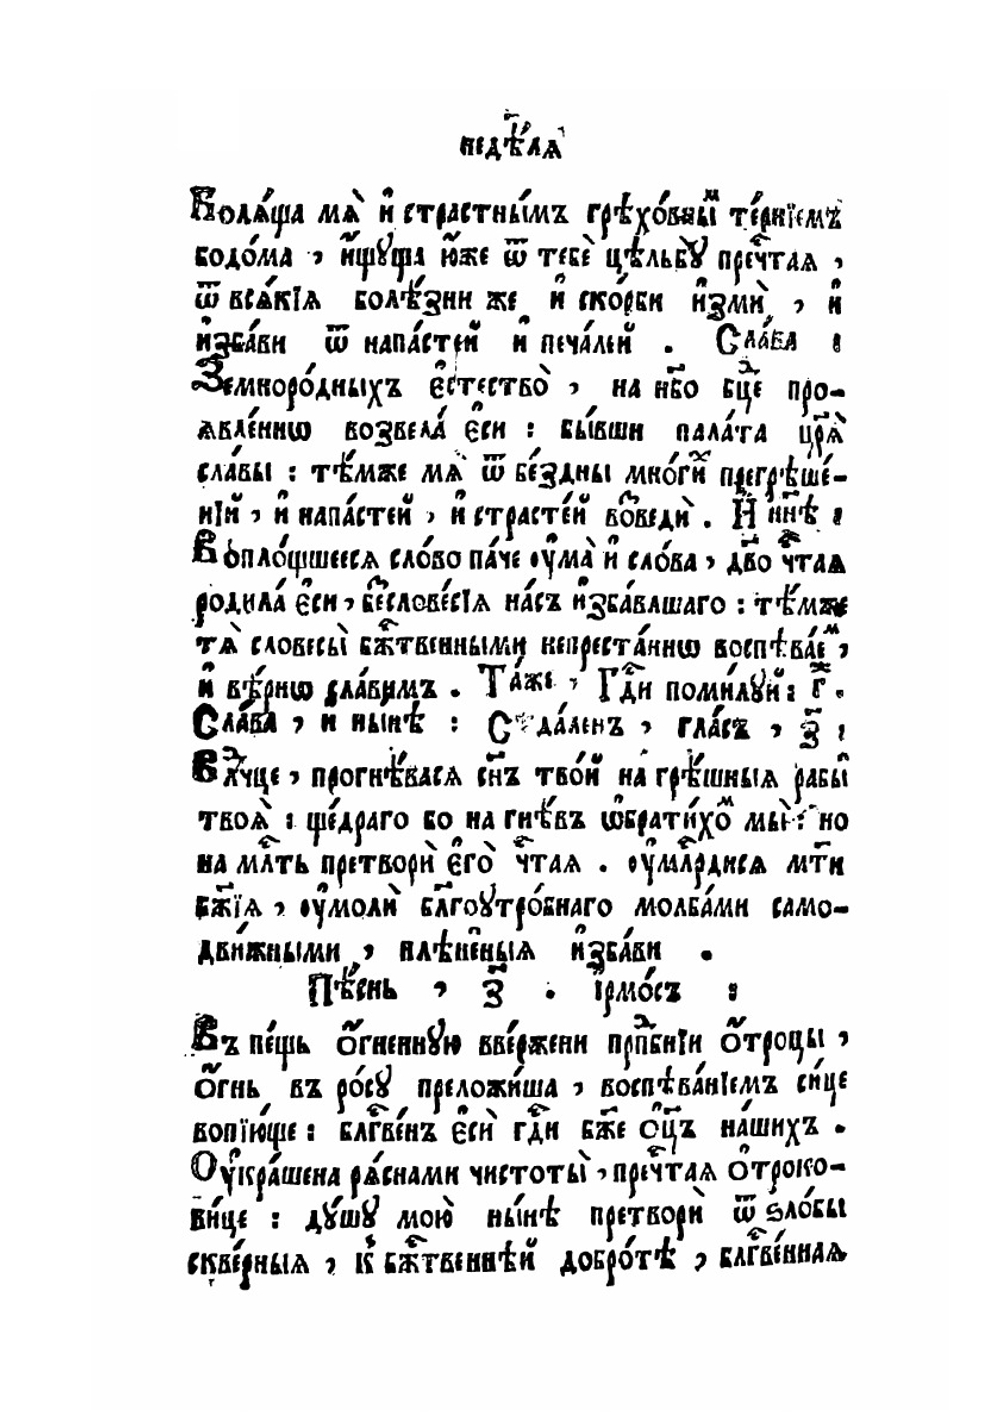 недѣ́лѧ
Болѧ́ща мѧ̀ и҆ стра́стнымъ грѣхо́вныⷨ те́рнїемъ
бодо́ма , и҆́щуща ю҆́же ѿ тебѐ цѣльбꙋ̀ пречⷭ҇таѧ ,
ѿ всѧ́кїѧ болѣ́зни же и҆ ско́рби и҆змѝ , и҆
и҆зба́ви ѿ напа́стей и҆ печа́лей . Сла́ва :
Земноро́дныхъ є҆стество̀ , на нб҃о бцⷣе про-
ѧвле́ннѡ возвела́ є҆си : бы́вши пала́та цр҃ѧ̀
сла́вы : тѣ́мже мѧ̀ ѿ бе́здны мно́гиⷯ прегрѣше́-
нїй , и҆ напа́стей , и҆ страсте́й воⷥведѝ . И҆ нн҃ѣ :
Воплощшеесѧ сло́во па́че ᲂу҆ма̀ и҆ сло́ва , дв҃о чⷭ҇таѧ
родила́ є҆си , беⷥслове́сїѧ на́съ и҆зба́вльшаго : тѣ́мже
тѧ̀ словесы̀ бжⷭ҇твенными непреста́ннѡ воспѣва́еⷨ ,
и҆ вѣ́рнѡ сла́вимъ . Та́же , Гдⷭ҇и поми́лꙋй : г҃ⷤ .
Сла́ва , и нынѣ : Сѣда́ленъ , гла́съ , з҃ :
Влⷣчце , прогнѣ́васѧ сн҃ъ тво́й на грѣ́шныѧ рабы̀
твоѧ̀ : ще́драго бо на гнѣ́въ ѡ҆брати́хоⷨ мы̀ : но
на млⷭ҇ть претворѝ є҆го̀ чⷭ҇таѧ . ᲂу҆млⷭ҇рдисѧ мт҃и
бж҃їѧ , ᲂу҆молѝ бл҃гоꙋтро́бнаго молба́ми само-
дви́жными , плѣне́ныѧ и҆зба́ви .
Пѣ́снь , з҃ . і҆рмо́съ :
Въ пе́щь ѻ҆́гненнꙋю вве́ржени прпⷣбнїи ѻ҆́троцы ,
ѻ҆́гнь въ ро́сꙋ преложи́ша , воспѣва́нїемъ си́це
вопїю́ще : блгⷭ҇ве́нъ є҆сѝ гдⷭ҇и бж҃е ѻ҆ц҃ъ на́шихъ .
Оу҆кра́шена рѧ́снами чистоты̀ , пречⷭ҇таѧ ѻ҆троко-
ви́це : дꙋ́шꙋ мою̀ ны́нѣ претворѝ ѿ ѕло́бы
скве́рныѧ , к бжⷭ҇твеннѣ́й добро́тѣ , блгⷭ҇ве́ннаѧ